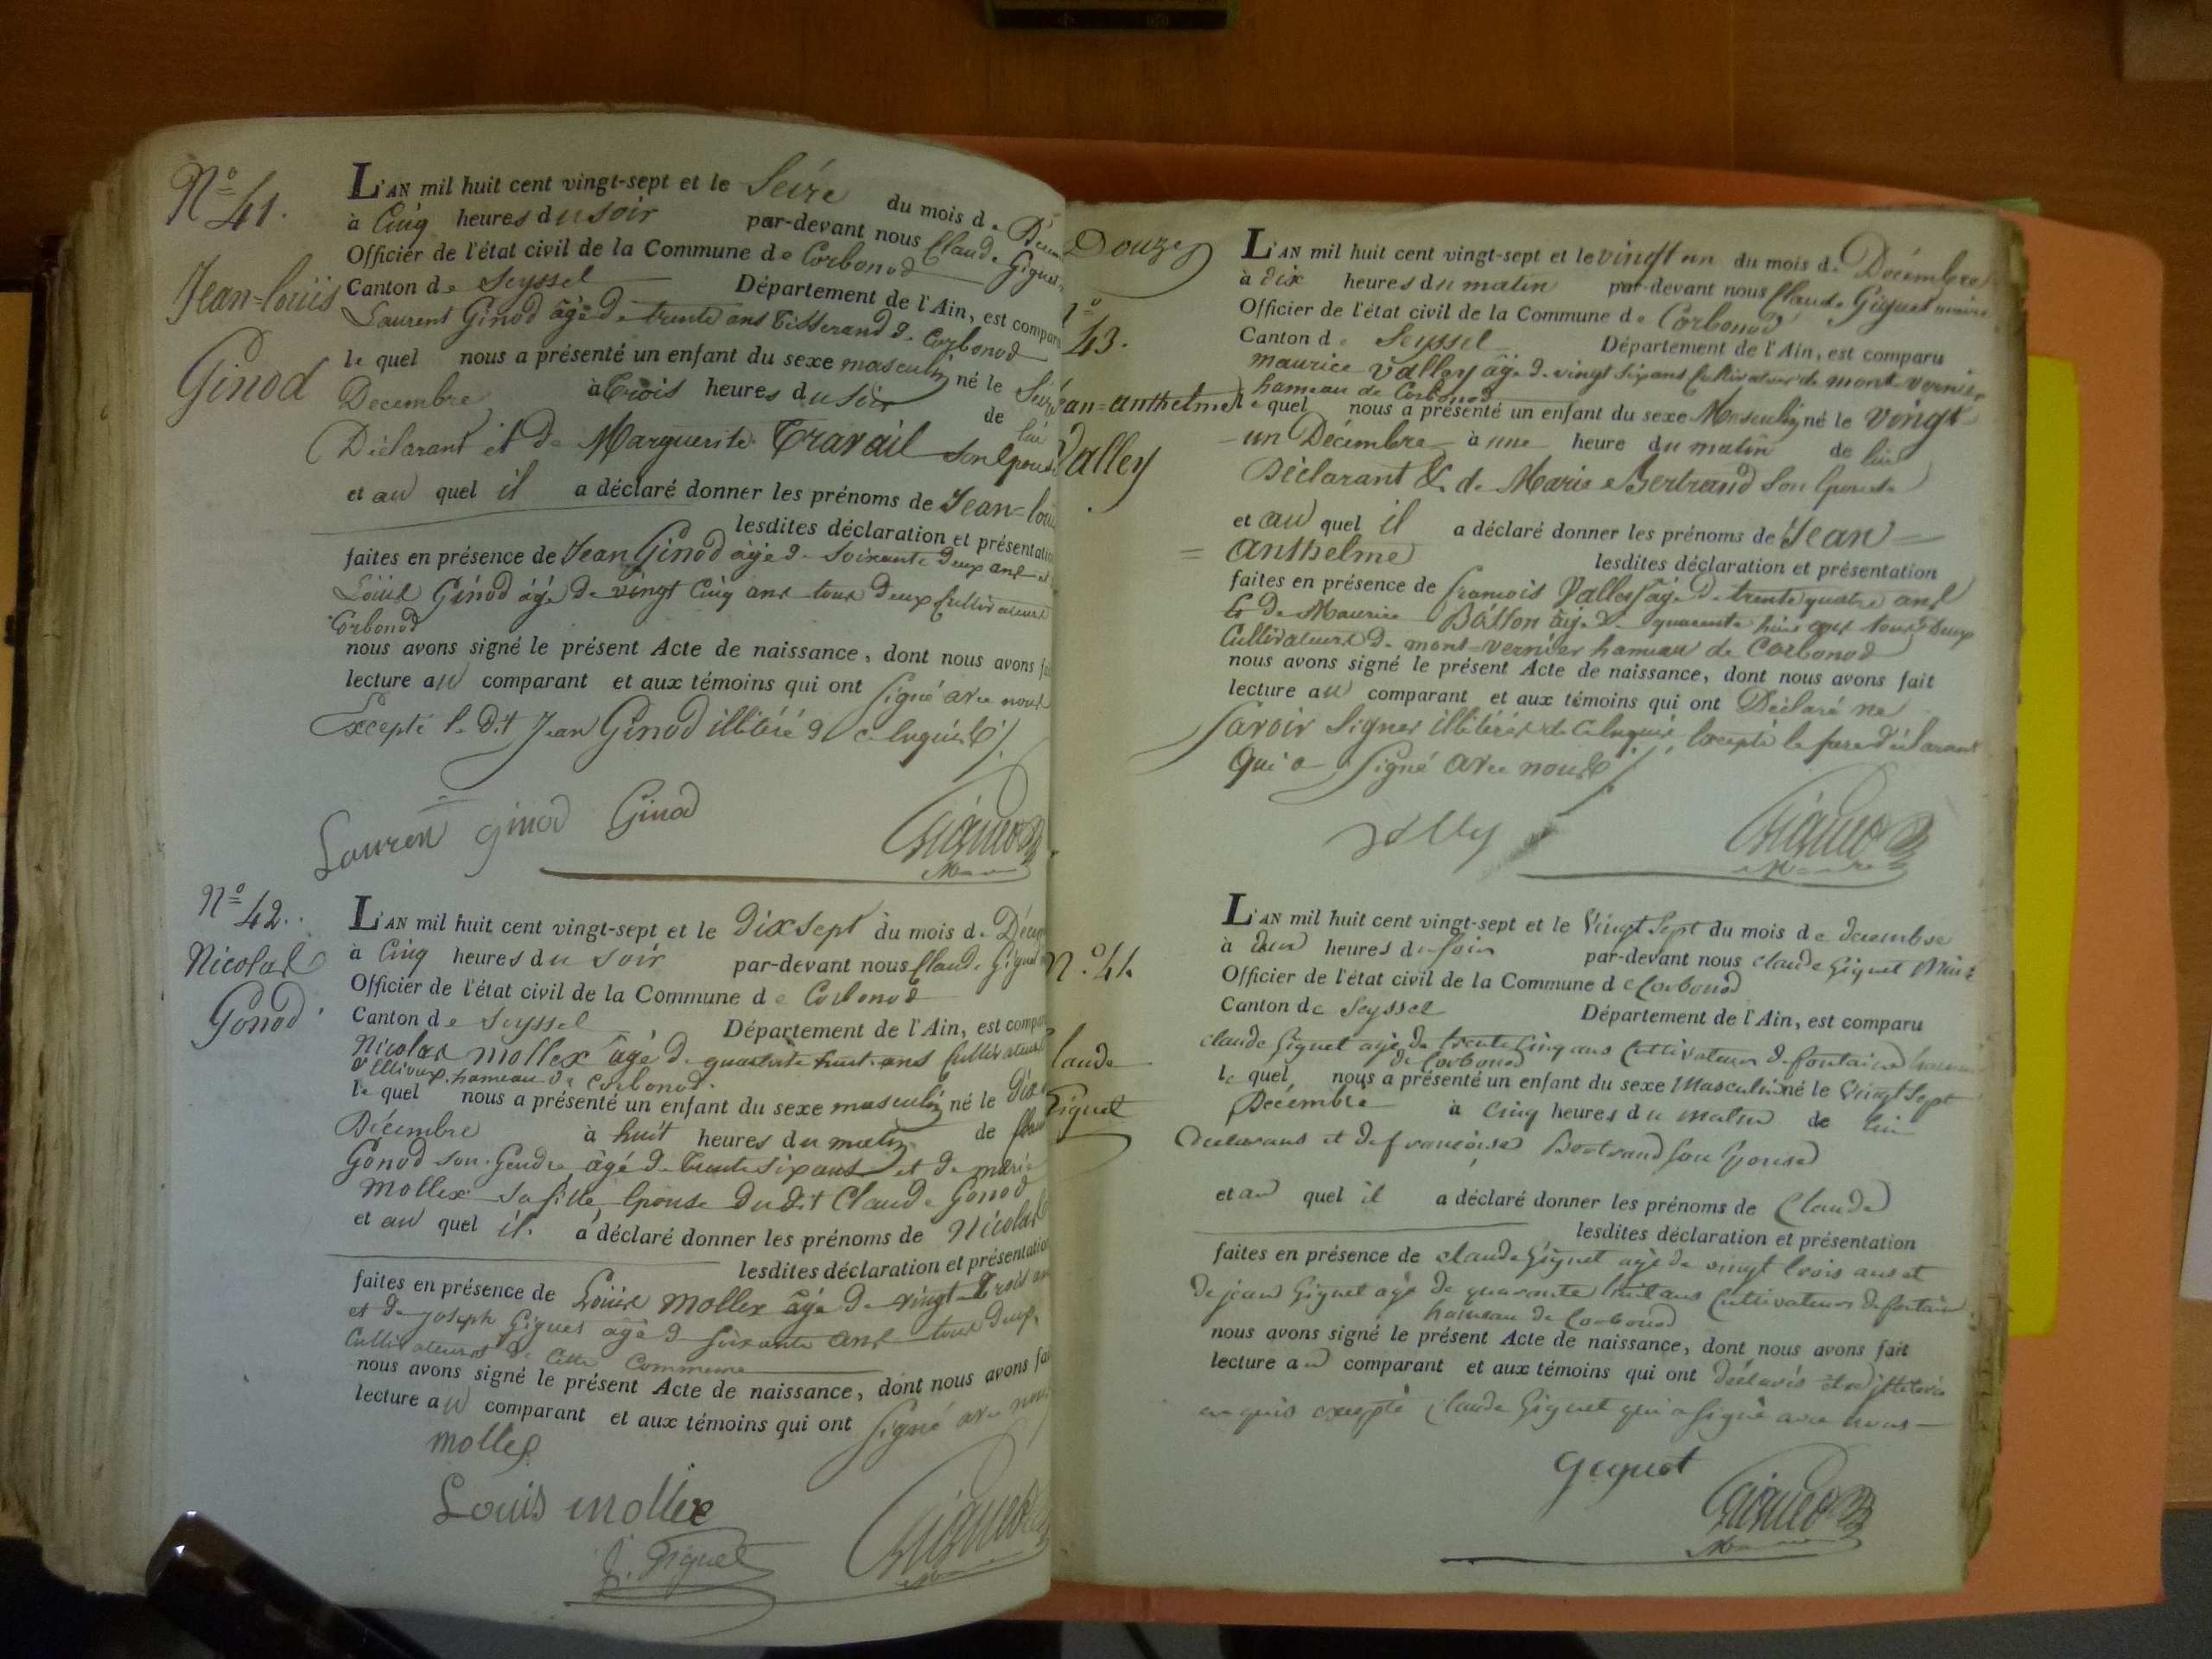 N° 41.
Jean=Louis
Ginod
L'AN mil huit cent vingt-sept et le Seize du mois de
à Cinq heures du soir par-devant nous Claude Giguet
Officier de l'état civil de la Commune de Corbonod
Canton de Seyssel Département de l'Ain, est compar
Laurent Ginod âgé de trente ans Tisserand de Corbonod
le quel nous a présenté un enfant du sexe masculin né le
Decembre à trois heures du soir de lui
Déclarant et de Marguerite Travail son Epouse
et au quel il a déclaré donner les prénoms de Jean=Loui
lesdites déclaration et présentatio
faites en présence de Jean Ginod âgé de soixante Deux ans et
Louis Ginod âgé de vingt Cinq ans tous deux Cultivateurs
Corbonod
nous avons signé le présent Acte de naissance, dont nous avons fai
lecture au comparant et aux témoins qui ont signé avec nous
Excepté le dit Jean Ginod illitéré de ce enquis
Lauren ginod Ginod
N° 42.
Nicolas
Gonod
L'AN mil huit cent vingt-sept et le Dix sept du mois de
à Cinq heures du soir par-devant nous Claude Giguet
Officier de l'état civil de la Commune de Corbonod
Canton de Seyssel Département de l'Ain, est compar
Nicolas Mollex âgé de quarante huit ans Cultivateur
hameau de Corbonod.
le quel nous a présenté un enfant du sexe masculin né le Dix
Décembre à huit heures du matin de
Gonod son Gendre âgé de trente six ans et de marie
Mollex sa fille, Epouse du dit Claude Gonod
et au quel il a déclaré donner les prénoms de Nicolas
lesdites déclaration et présentatio
faites en présence de Louis Mollex âgé de vingt Trois an
et de Joseph Giguet âgé de soixante ans tous deux
Cultivateurs de Cette Commune
nous avons signé le présent Acte de naissance, dont nous avons fai
lecture au comparant et aux témoins qui ont signé avec nous
mollex
Louis mollex
J. Giguet
Douze
N°
43.
ean=anthelme
Valley
L'AN mil huit cent vingt-sept et le vingt un du mois de Décembre
à dix heures du matin par-devant nous Claude Giguet maire
Officier de l'état civil de la Commune de Corbonod
Canton de Seyssel Département de l'Ain, est comparu
Maurice Valley âgé de vingt six ans Cultivateur de mont=vernier
hameau de Corbonod
le quel nous a présenté un enfant du sexe Masculin né le vingt
un Décembre à une heure du matin de lui
Déclarant & de Marie Bertrand son Epouse
et au quel il a déclaré donner les prénoms de Jean=
=anthelme lesdites déclaration et présentation
faites en présence de François Valley âgé de trente quatre ans
& de Maurice âgé de quarante huit ans tous deux
Cultivateurs de mont=vernier hameau de Corbonod
nous avons signé le présent Acte de naissance, dont nous avons fait
lecture au comparant et aux témoins qui ont Déclaré ne
savoir signer illitérés de ce enquis, Excepté le père déclarant
qui a signé avec nous
N° 44
laude
Giguet
L'AN mil huit cent vingt-sept et le vingt sept du mois de decembre
à heures du soir par-devant nous claude Giguet Maire
Officier de l'état civil de la Commune de Corbonod
Canton de Seyssel Département de l'Ain, est comparu
claude Giguet agé de trente cinq ans cultivateur de fontaine hameau
de Corbonod
le quel nous a présenté un enfant du sexe Masculin né le vingt sept
Décembre à cinq heures du matin de lui
declarant et de françoise Bertrand son Epouse
et au quel il a déclaré donner les prénoms de Claude
lesdites déclaration et présentation
faites en présence de claude Giguet agé de vingt trois ans et
de jean Giguet agé de quarante huit ans cultivateurs de fontaine
hameau de Corbonod
nous avons signé le présent Acte de naissance, dont nous avons fait
lecture au comparant et aux témoins qui ont déclarés
enquis excepté claude Giguet qui a signé avec nous